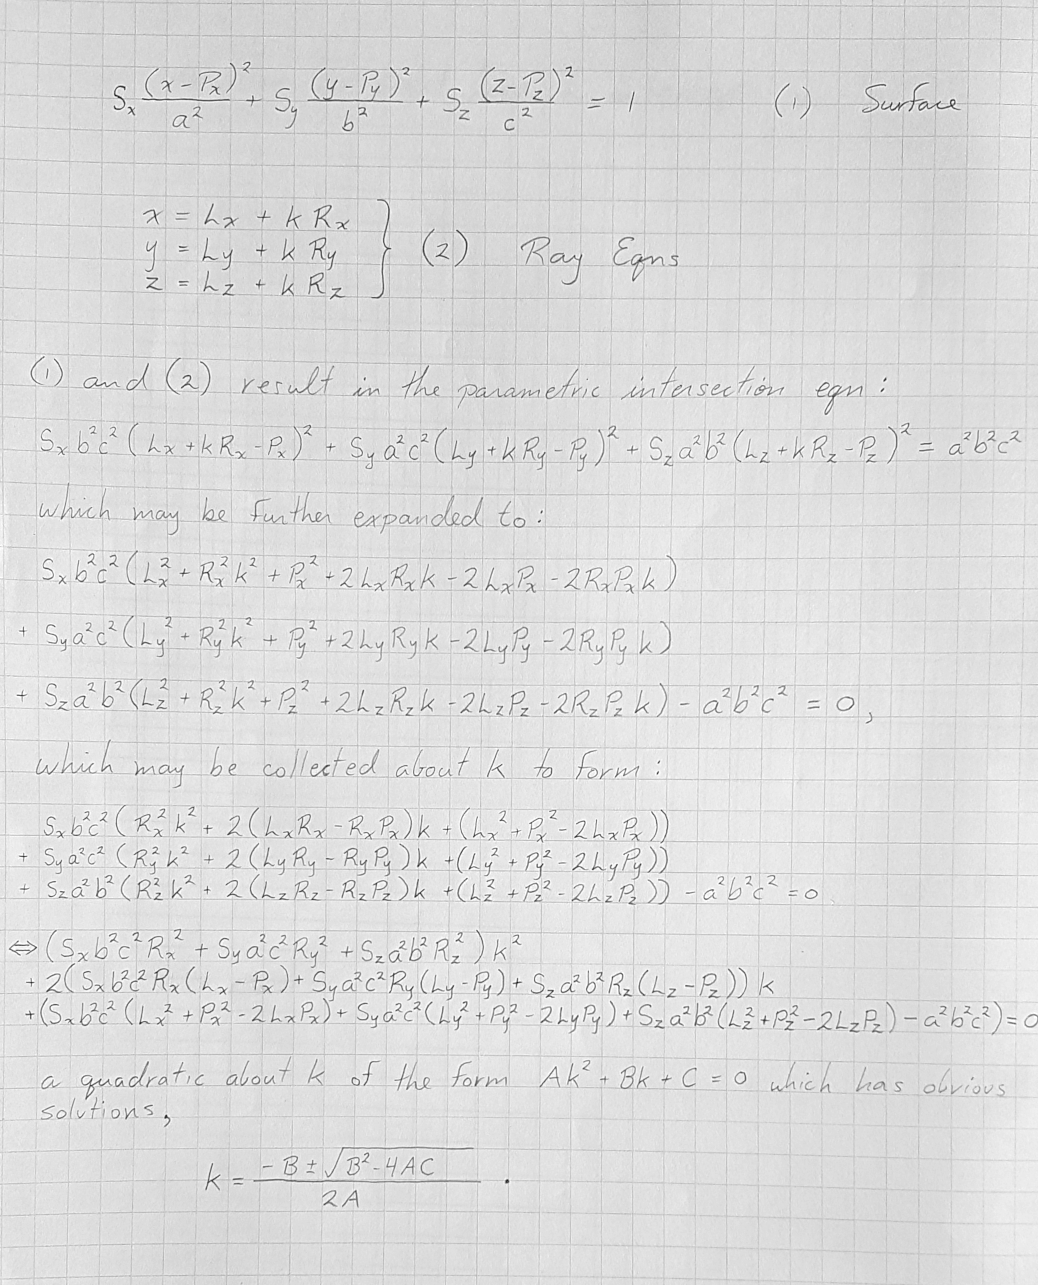 Sₓ (x-Pₓ)²/a² + Sy (y-Py)²/b² + Sz (z-Pz)²/c² = 1 (1) Surface
x = Lx + k Rx
y = Ly + k Ry } (2) Ray Eqns
z = Lz + k Rz
(1) and (2) result in the parametric intersection eqn:
Sx b²c² (Lx + kRx - Px)² + Sy a²c² (Ly + kRy - Py)² + Sz a²b² (Lz + kRz - Pz)² = a²b²c²
which may be further expanded to:
Sx b²c² (Lx² + Rx²k² + Px² + 2LxRxk - 2LxPx - 2RxPxk)
+ Sy a²c² (Ly² + Ry²k² + Py² + 2LyRyk - 2LyPy - 2RyPyk)
+ Sz a²b² (Lz² + Rz²k² + Pz² + 2LzRzk - 2LzPz - 2RzPzk) - a²b²c² = 0,
which may be collected about k to form:
Sx b²c² (Rx²k² + 2(LxRx - RxPx)k + (Lx² + Px² - 2LxPx))
+ Sy a²c² (Ry²k² + 2(LyRy - RyPy)k + (Ly² + Py² - 2LyPy))
+ Sz a²b² (Rz²k² + 2(LzRz - RzPz)k + (Lz² + Pz² - 2LzPz)) - a²b²c² = 0
⇔ (Sx b²c² Rx² + Sy a²c² Ry² + Sz a²b² Rz²) k²
+ 2(Sx b²c² Rx (Lx - Px) + Sy a²c² Ry (Ly - Py) + Sz a²b² Rz (Lz - Pz)) k
+ (Sx b²c² (Lx² + Px² - 2LxPx) + Sy a²c² (Ly² + Py² - 2LyPy) + Sz a²b² (Lz² + Pz² - 2LzPz) - a²b²c²) = 0
a quadratic about k of the form Ak² + Bk + C = 0 which has obvious
solutions,
k = (-B ± √(B² - 4AC)) / 2A .